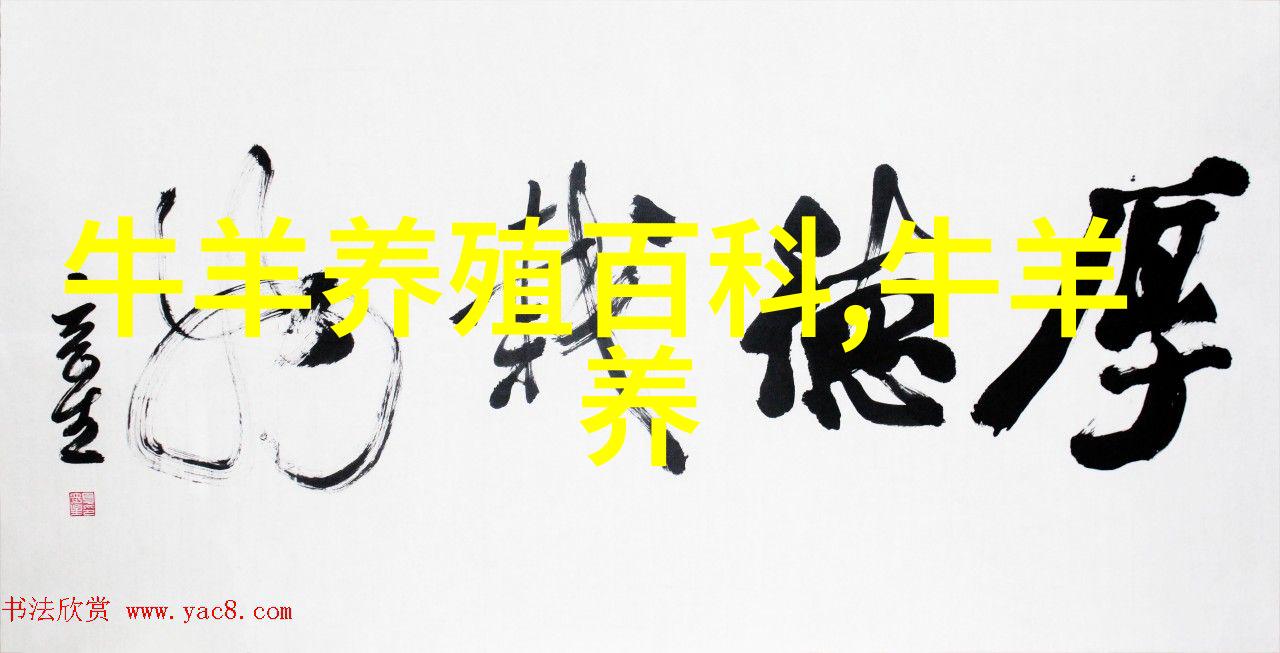 牛羊养殖百科,牛羊
养
厚德载物
书法欣赏 www.yac8.com